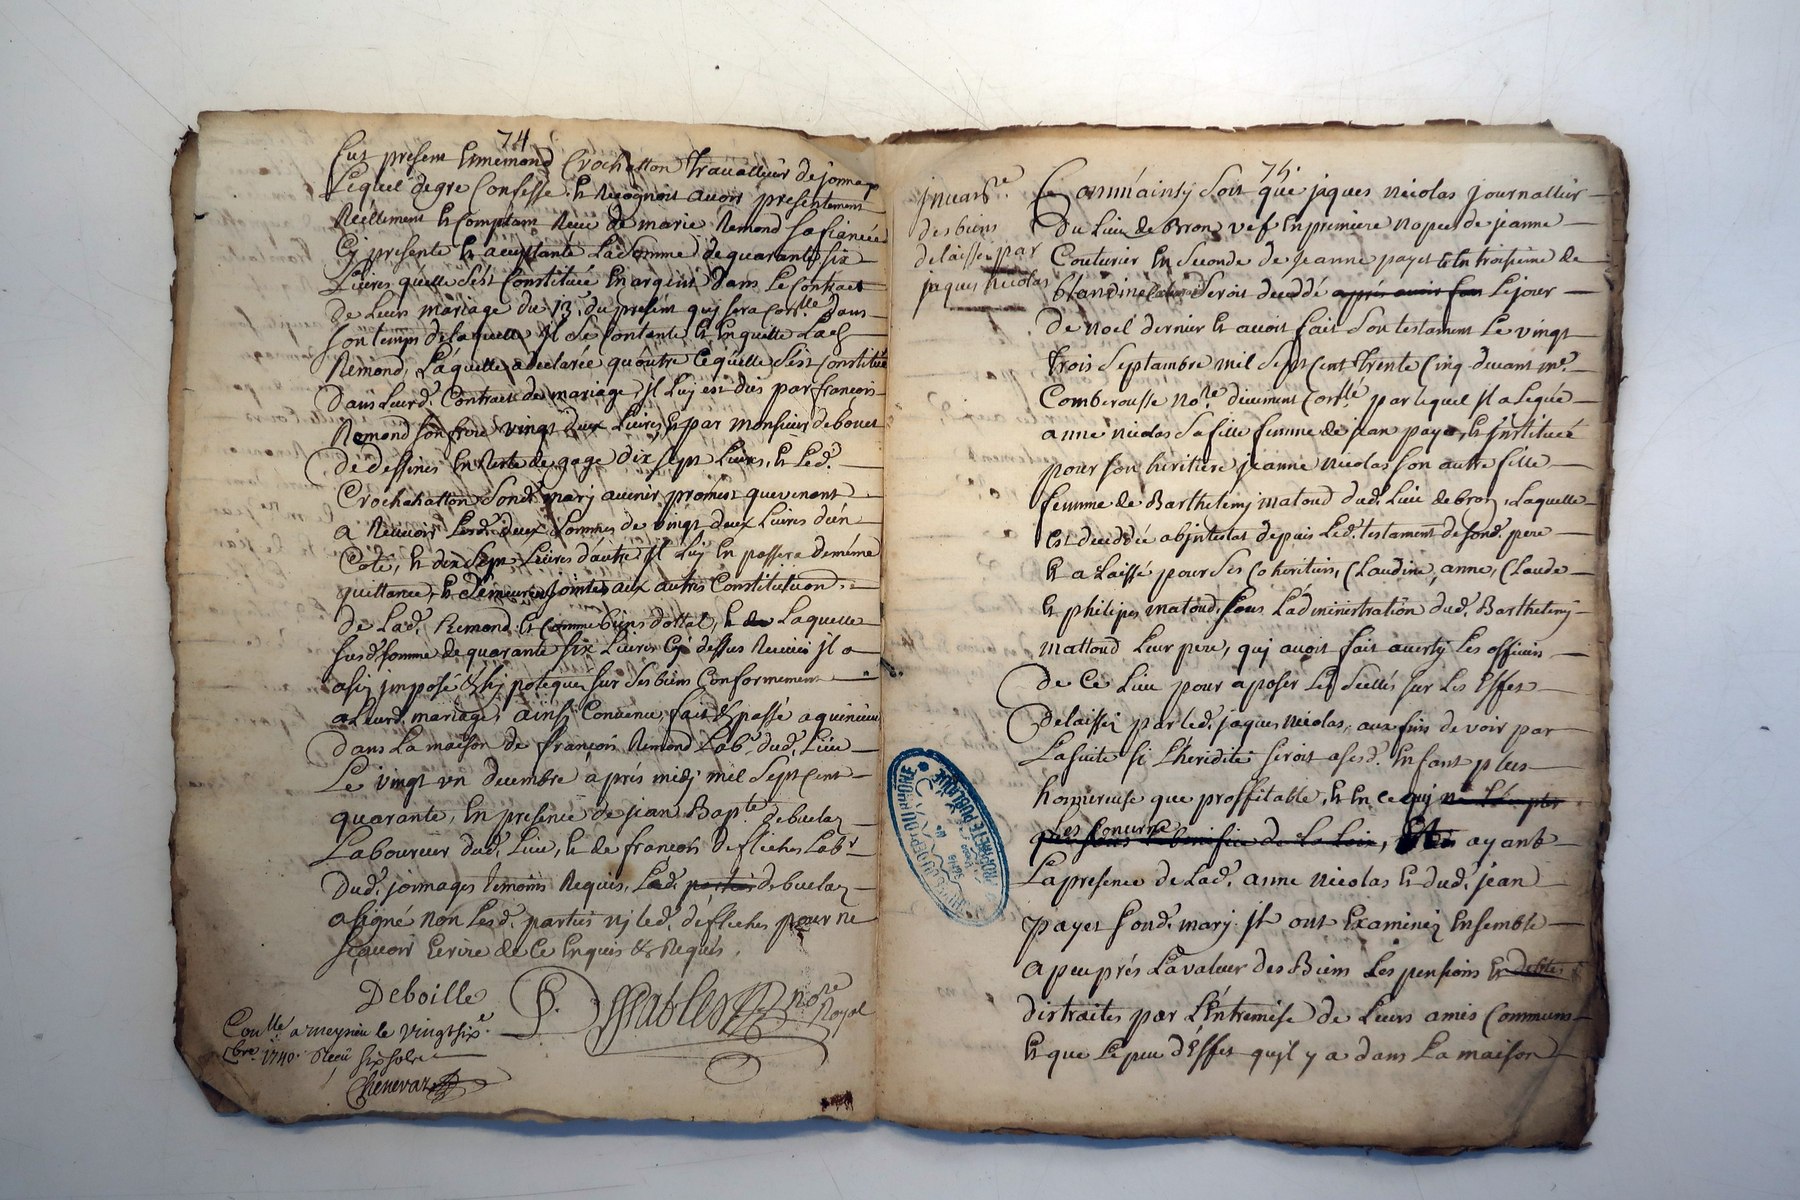 74
fut present Ennemond Crochatton travailleur de jonnage
Lequel de gre Confesse et Recognoit avoir presentement
Reellement et Comptant Receu de marie Remond sa fiancée
Cy presente et aceptante La somme de quarante six
Livres qu'elle s'est Constituée En argent dans Le Contract
de Leurs mariage du 13e du present quj sera Con.lle dans
son temps de laquelle Il se Contante et En quitte Lad.
Remond, Laquelle a declarée qu'outre Ce qu'elle s'est Constitué
dans Leurd. Contract de mariage, Il Luj est dus par francois
Remond son frere vingt deux Livres et par monsieur de bouet
de dessines En Reste de gage dix sept Livres, et Led.
Crochatton sond. marj avenir promest que venant
a Recevoir Lesd. deux sommes de vingt deux Livres d'un
Coté, et dix sept Livres d'autre Il Luj En passera de meme
quittance, et demeureront jointes aux autres Constitution
de Lad. Remond et Comme biens dottal, et Laquelle
susd. somme de quarante six Livres Cy dessus Receus Il a
asis jmposé & hj potequé sur ses biens Conformement
a Leurd. mariage, ainsi Convenu, fait & passé a quincieu
dans La maison de francois Remond Lab. dud. Lieu
Le vingt un decembre aprés midj mil sept cent
quarante, En presence de jean Bap.te debuclaz
Laboureur dud. Lieu, et de francois defliches Lab.r
dud. jonnages temoins Requis, Led. debuclaz
a signé non Lesd. parties nj led. défliches pour ne
scavoir Ecrire de Ce Enquis & Requis.
Deboille
Desgables no.re Royal
Con.llé a meyzieu le vingt six
xbre 1740. Reçu six sols
Chenevaz
75
jnvant.re
des biens
delaissés par
jaques nicolas
Comm'ainsy soit que jaques nicolas journallier
du Lieu de bron vef En premiere nopces de jeanne
Couturier En seconde de jeanne payet et En troisieme de
blandine seroit decedé après avoir fait Le jour
de noel dernier et avoir fait son testament Le vingt
trois septambre mil sept Cent trente Cinq devant m.e
Comberousse no.re deuement Con.llé par lequel Il a Legué
a anne nicolas sa fille femme de jean payet, et jnstitueé
pour son heritiere jeanne nicolas son autre fille
femme de Barthelemj matoud dud. Lieu de bron, Laquelle
est decedée abjntestat depuis Led. testament de sond. pere
et a Laissé pour ses Coheritiers, Claudine, anne, Claude
et philipes matoud, sous L'administration dud. Barthelemj
mattoud Leur pere, quj avoit fait avertj Les officiers
de Ce Lieu pour aposer Les scellés sur Les Effets
delaissés par led. jaques nicolas, aux fins de voir par
La suite si L'heridité seroit a sesd. Enfant plus
honnereuse que proffitable, et En ce quj
Les Concerne
que sous le benefice de La Loix, ayant
La presence de Lad. anne nicolas et dud. jean
payet sond. marj Ils ont Examinés Ensemble
a peu prés La valeur des Biens Les pensions et debtes
distraites par L'Entremise de Leurs amis Communs
et que Le peu d'Effet qu'il y a dans La maison
PROPRIETE PUBLIQUE